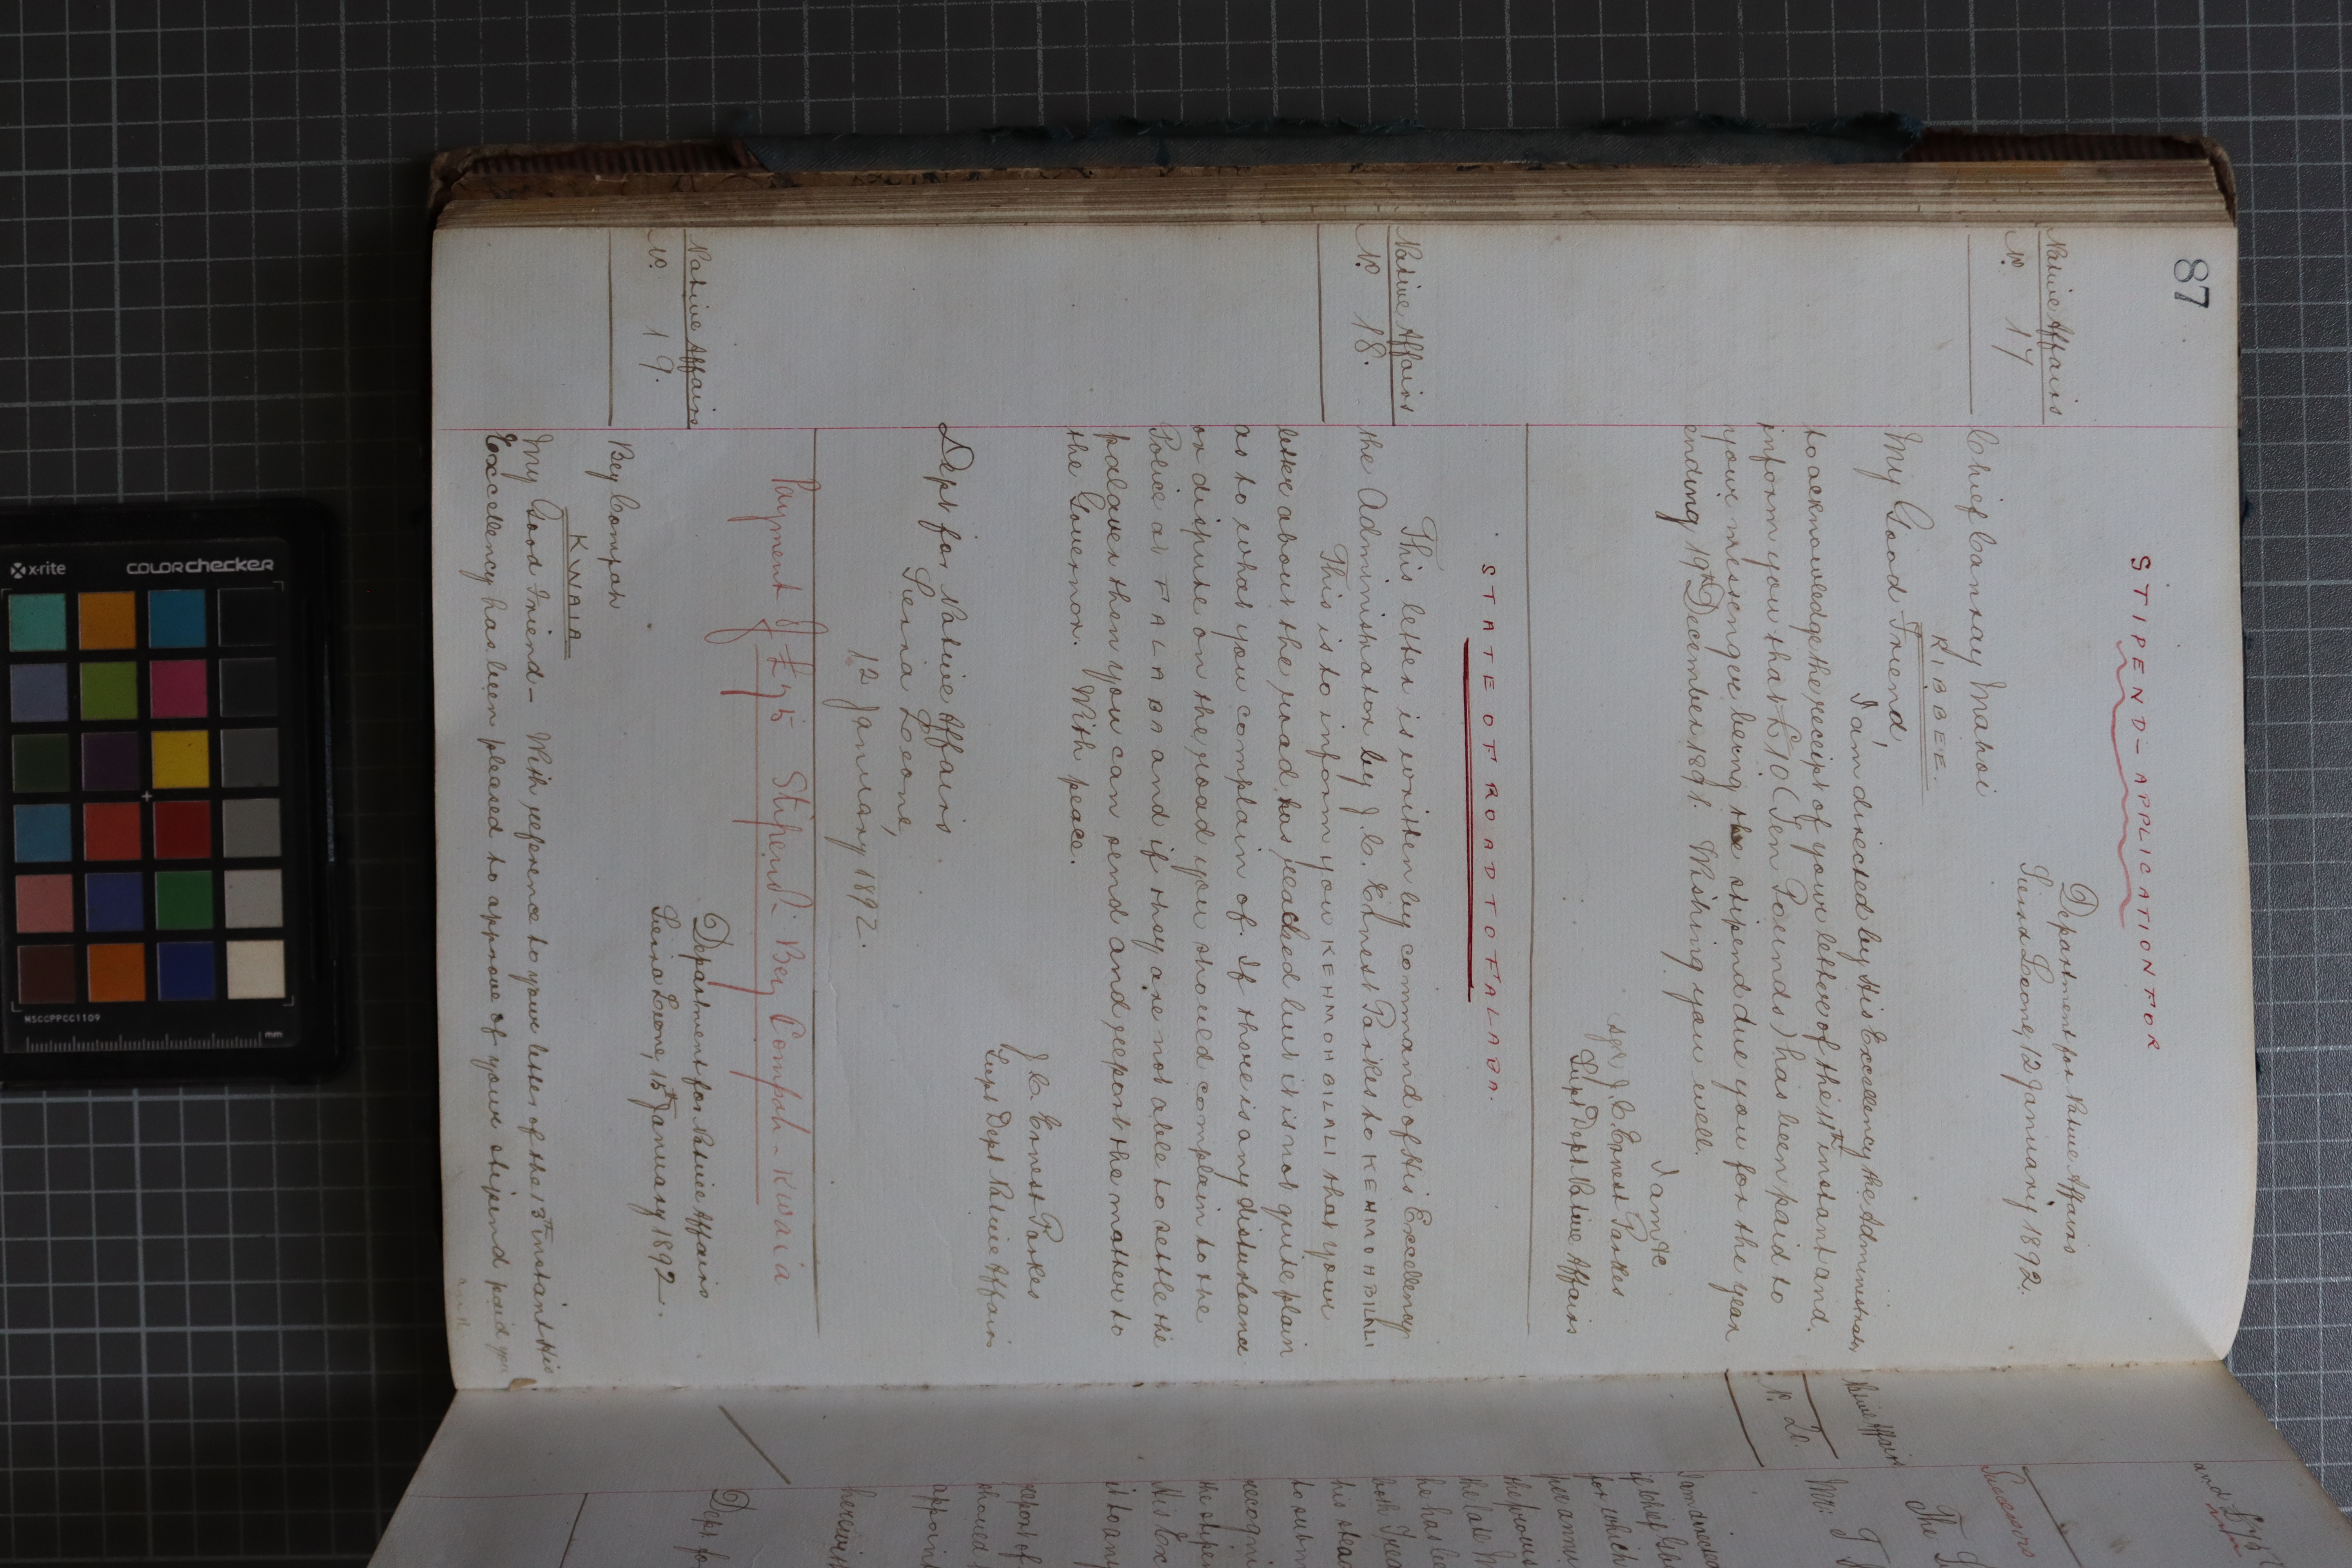 87
STIPEND-APPLICATION FOR
Native Affairs
No. 17
Department for Native Affairs
Sierra Leone, 12 January 1892.
Chief Canray Mahoi
RIBBEE.
My Good Friend,
I am directed by His Excellency the Administrator
to acknowledge the receipt of your letter of the 11th instant and
inform you that £10 (Ten Pounds) has been paid to
your messenger being the stipend due you for the year
ending 19th December 1891. Wishing you well.
I am &c
Sgd J. C. Ernest Parkes
Supt Dept Native Affairs
STATE OF ROAD TO FALABA.
Native Affairs
No. 18.
This letter is written by command of His Excellency
the Administrator by J. C. Ernest Parkes to KEHMOHBILALI
This is to inform you KEHMOHBILALI that your
letter about the road has reached but it is not quite plain
as to what you complain of. If there is any disturbance
or dispute on the road you should complain to the
Police at FALABA and if they are not able to settle the
palaver then you can send and report the matter to
the Governor. With peace.
J. C. Ernest Parkes
Supt Dept Native Affairs
Dept for Native Affairs
Sierra Leone,
12 January 1892.
Payment of £75 Stipend - Bey Compah - Kwaia
Native Affairs
No. 19.
Department for Native Affairs
Sierra Leone, 15th January 1892.
Bey Compah
KWAIA
My Good Friend - With reference to your letter of the 13th instant His
Excellency has been pleased to approve of your stipend paid you
and
Successors
The
Native Affairs
No. 20.
Mr. T
I am directed
if Chief
for which
per ann
the previous
the late
he has
both
his stead
to subm
recogni
the stipen
His Ex
it to any
report of
should
appoint
herewith
Dept fo